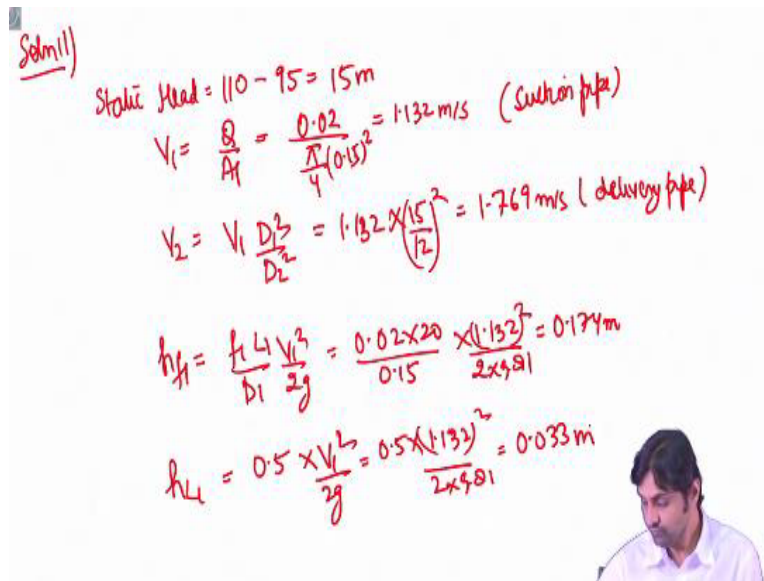 Soln 11)
Static Head = 110 - 95 = 15m
V₁ = Q/A₁ = 0.02/(π/4 (0.15)²) = 1.132 m/s (suction pipe)
V₂ = V₁ D₁²/D₂² = 1.132 × (15/12)² = 1.769 m/s (delivery pipe)
hf₁ = f₁L₁/D₁ V₁²/2g = 0.02×20/0.15 × (1.132)²/2×9.81 = 0.174m
hL₁ = 0.5 × V₁²/2g = 0.5×(1.132)²/2×9.81 = 0.033m